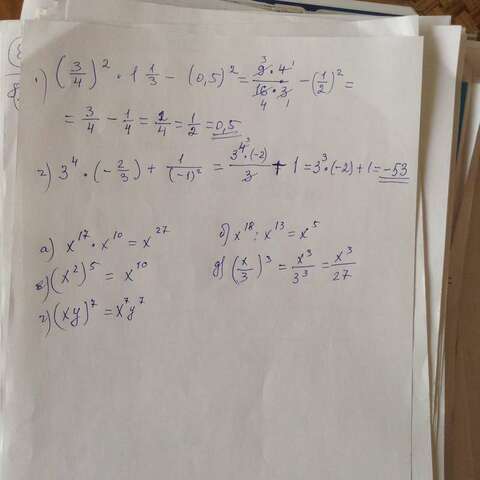 1) (3/4)² · 1 1/3 − (0,5)² = 9·4/16·3 − (1/2)² =
= 3/4 − 1/4 = 2/4 = 1/2 = 0,5
2) 3⁴ · (−2/3) + 1/(−1)² = 3⁴·(−2)/3 + 1 = 3³·(−2) + 1 = −53
а) x¹⁷ · x¹⁰ = x²⁷ б) x¹⁸ : x¹³ = x⁵
в) (x²)⁵ = x¹⁰ д) (x/3)³ = x³/3³ = x³/27
г) (xy)⁷ = x⁷y⁷